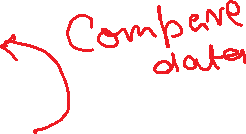 Compare
data